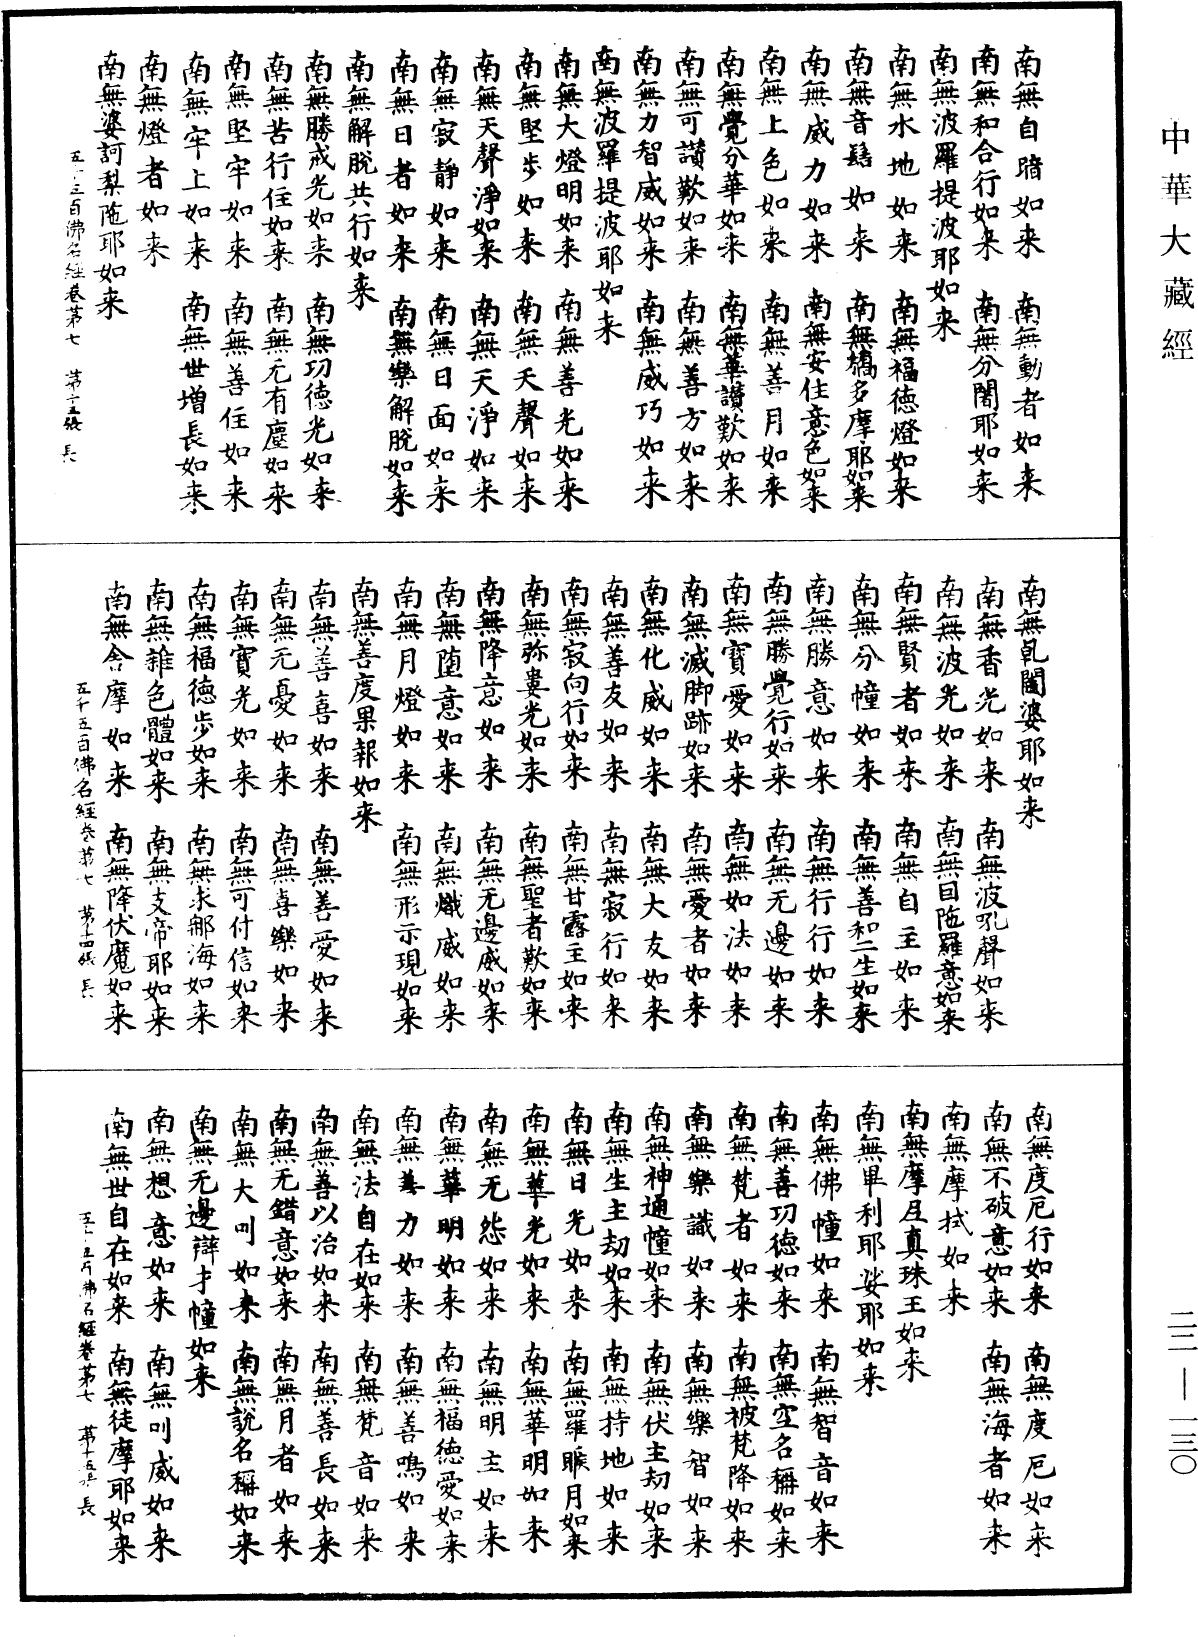 中華大藏經
南無自暗如来　南無動者如来
南無和合行如来　南無分闍耶如来
南無波羅提波耶如来
南無水地如来　南無福德燈如来
南無音髻如来　南無憍多摩耶如来
南無威力如来　南無安住意色如来
南無上色如来　南無善月如来
南無覺分華如来　南無華讃歎如来
南無可讃歎如来　南無善方如来
南無力智威如来　南無威巧如来
南無波羅提波耶如来
南無大燈明如来　南無善光如来
南無堅步如来　南無天聲如来
南無天聲淨如来　南無天淨如来
南無寂静如来　南無日面如来
南無日者如来　南無樂解脫如来
南無解脫共行如来
南無勝戒光如来　南無功德光如来
南無苦行住如来　南無无有塵如来
南無堅牢如来　南無善住如来
南無牢上如来　南無世增長如来
南無燈者如来
南無婆訶梨陁耶如来
佛名經卷第七
南無乹闥婆耶如来
南無香光如来　南無波吼聲如来
南無波光如来　南無目陁羅意如来
南無賢者如来　南無自主如来
南無分幢如来　南無善和二生如来
南無勝意如来　南無行行如来
南無勝覺行如来　南無无邊如来
南無寶愛如来　南無如法如来
南無滅脚跡如来　南無愛者如来
南無化威如来　南無大友如来
南無善友如来　南無寂行如来
南無寂向行如来　南無甘露主如来
南無弥婁光如来　南無聖者歎如来
南無降意如来　南無无邊威如来
南無堕意如来　南無熾威如来
南無月燈如来　南無形示現如来
南無善度果報如来
南無善喜如来　南無善愛如来
南無无憂如来　南無喜樂如来
南無寶光如来　南無可付信如来
南無福德步如来　南無求那海如来
南無雜色體如来　南無支帝耶如来
南無舍摩如来　南無降伏魔如来
五千五百佛名經卷第七　第十四張
南無度厄行如来　南無度厄如来
南無不破意如来　南無海者如来
南無摩拭如来
南無摩尼真珠王如来
南無畢利耶娑耶如来
南無佛幢如来　南無智音如来
南無善功德如来　南無空名稱如来
南無梵者如来　南無被梵降如来
南無樂識如来　南無樂智如来
南無神通幢如来　南無伏主劫如来
南無生主劫如来　南無持地如来
南無日光如来　南無羅睺月如来
南無華光如来　南無華明如来
南無无怨如来　南無明主如来
南無華明如来　南無福德愛如来
南無善力如来　南無善鳴如来
南無法自在如来　南無梵音如来
南無善以治如来　南無善長如来
南無无錯意如来　南無月者如来
南無大叫如来　南無說名稱如来
南無无邊辯才幢如来
南無想意如来　南無叫威如来
南無世自在如来　南無徒摩耶如来
佛名經卷第七
二二—一三〇